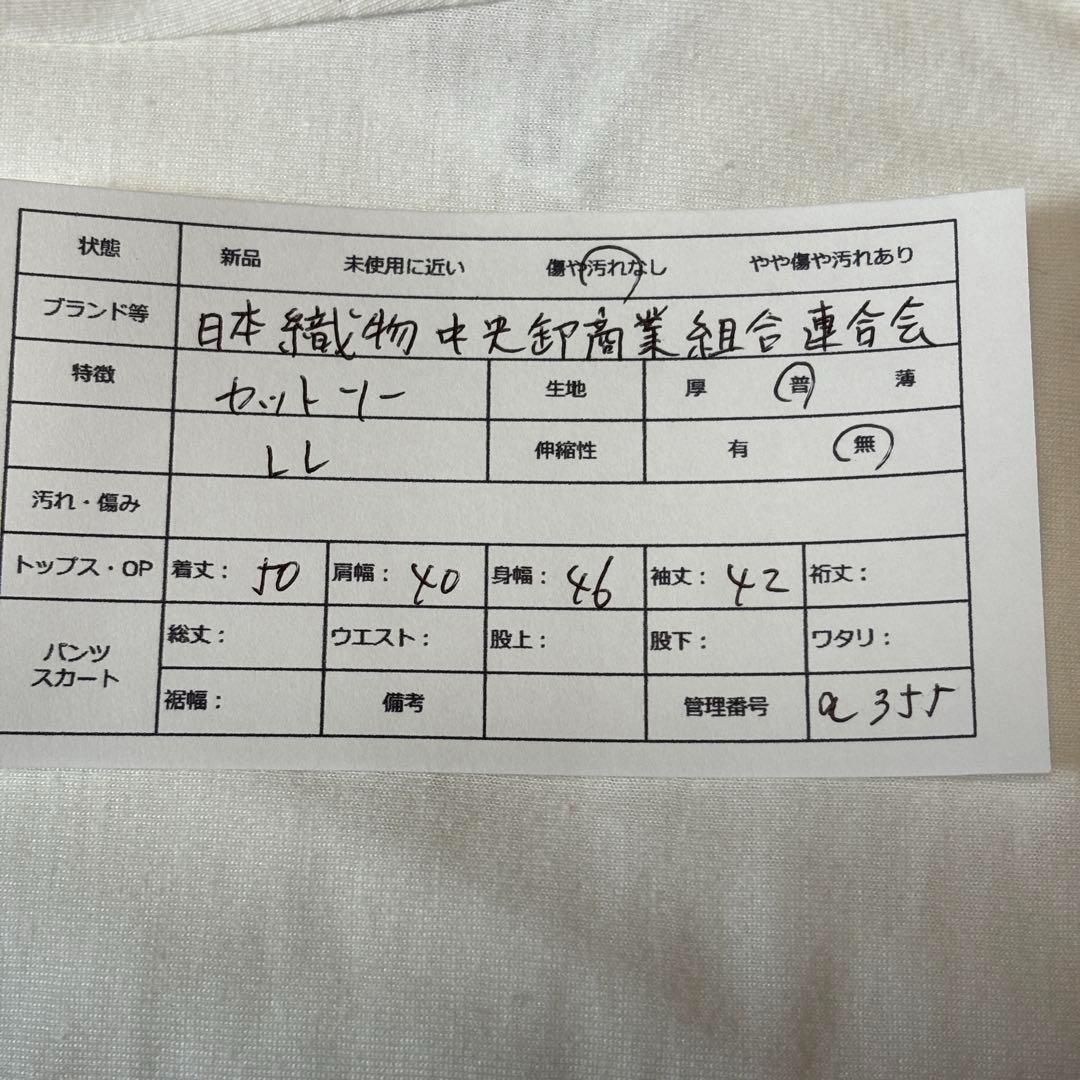 状態 新品 未使用に近い 傷や汚れなし やや傷や汚れあり
ブランド等 日本織物中央卸商業組合連合会
特徴 カットソー 生地 厚 普 薄
LL 伸縮性 有 無
汚れ・傷み
トップス・OP 着丈： 50 肩幅： 40 身幅： 46 袖丈： 42 裄丈：
パンツ スカート 総丈： ウエスト： 股上： 股下： ワタリ：
裾幅： 備考 管理番号 a 355